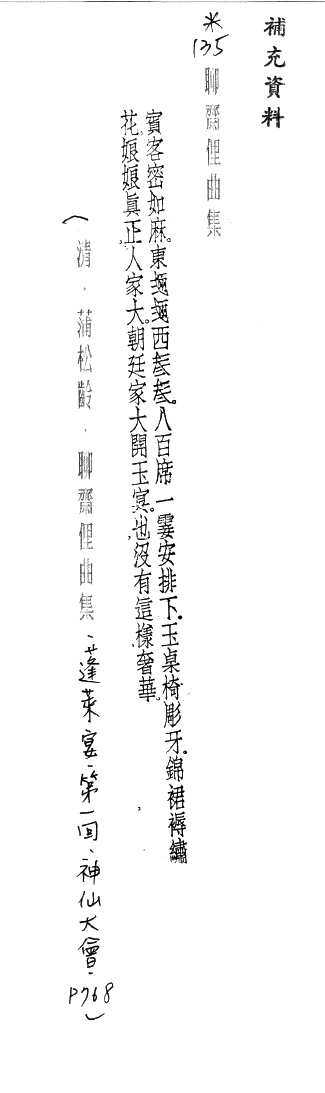 補充資料
*135 聊齋俚曲集
賓客密如麻。東𨑨𨑨西𨑨𨑨。八百席一霎安排下。玉桌椅彫牙。錦裙褥繡
花。娘娘眞正人家大。朝廷家大開玉宴。也沒有這樣奢華。
(清．蒲松齡．聊齋俚曲集．蓬萊宴．第一回．神仙大會．P768)